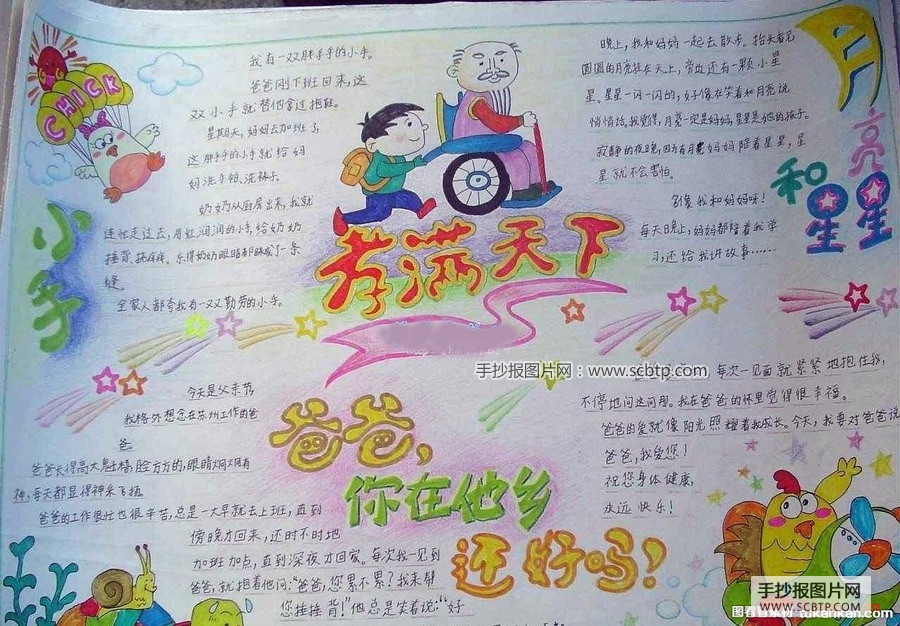 CHICK
小手
我有一双胖手手的小手。
爸爸刚下班回来,这
双小手就替他拿过拖鞋。
星期天,妈妈去加班了,
这胖手手的小手就给妈
妈洗手帕、洗袜子。
奶奶从厨房出来,我就
连忙走过去,用红润润的小手,给奶奶
捶背、挠痒痒。乐得奶奶眼睛都眯成了一条
缝。
全家人都夸我有一双勤劳的小手。
孝满天下
月亮和星星
晚上,我和妈妈一起去散步。抬头看见
圆圆的月亮挂在天上,旁边还有一颗小星
星。星星一闪一闪的,好像在笑着和月亮说
悄悄话。我觉得,月亮一定是妈妈,星星是他的孩子。
寂静的夜晚,因为有月亮妈妈陪着星星,星
星就不会害怕。
多像我和妈妈呀!
每天晚上,妈妈都陪着我学
习,还给我讲故事……
手抄报图片网:www.scbtp.com
爸爸,
你在他乡
还好吗!
今天是父亲节,
我格外想念在苏州工作的爸
爸
爸爸长得高大魁梧,脸方方的,眼睛炯炯有
神,每天都显得神采飞扬。
爸爸的工作很忙也很辛苦,总是一大早就去上班,直到
傍晚才回来,还时不时地
加班加点,直到深夜才回家。每次我一见到
爸爸,就抱着他问:“爸爸,您累不累?我来帮
您捶捶背!”他总是笑着说:“好
每次一见面就紧紧地抱住我,
不停地问这问那。我在爸爸的怀里觉得很幸福。
爸爸的爱就像阳光照耀着我成长。今天,我要对爸爸说
爸爸,我爱您!
祝您身体健康,
永远快乐!
手抄报图片网
SCBTP.COM
tukankan.com